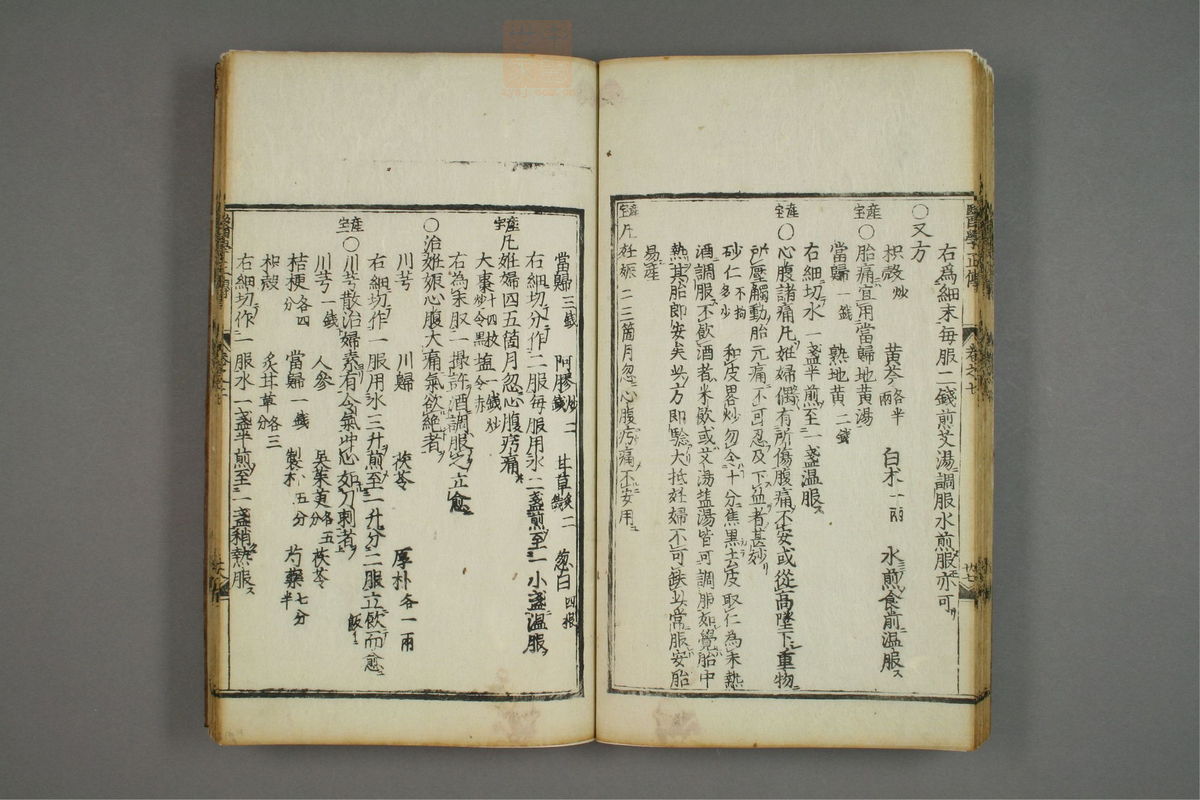 醫學正傳 卷之七 廿七
右爲細末毎服二錢煎艾湯調服水煎服亦可
○又方
枳殻炒 黄芩各半兩 白朮一兩 水煎食前温服ス
産宝○胎痛宜用當歸地黄湯
當歸一錢 熟地黄二錢
右細切水一盞半煎至一盞温服ス
産宝○心腹諸痛凡姙婦偶有所傷腹痛不安或從高墜下重物
所壓觸動胎元痛不可忍及下益者甚妙
砂仁不拘多少 和皮畧炒勿令十分焦黒去皮取仁為末熱
酒調服不飲酒者米飲或艾湯塩湯皆可調服如覺胎中
熱其胎即安矣此方即驗大抵妊婦不可缺此常服安胎
易産
産宝凡妊娠二三箇月忽心腹疞痛不安用
當歸三錢 阿膠炒二錢 甘草炙二錢 葱白四根
右細切分作二服毎服用水二盞煎至一小盞温服
産宝凡姙婦四五箇月忽心腹疞痛
大棗十四枚炒令黒 塩一錢炒令赤
右為末取一撮許酒調服之立愈
○治姙娠心腹大痛氣欲絶者
川芎 川歸 茯苓 厚朴各一兩
右細切作一服用水三升煎至二升分二服立飲而愈
産宝○川芎散治婦素有冷氣冲心如刀刺者
川芎一錢 人參 吳茱萸各五分 茯苓
桔梗各四分 當歸一錢 製朴五分 芍藥七分半
枳殻 炙甘草各三分
右細切作一服水一盞半煎至一盞稍熱服ス